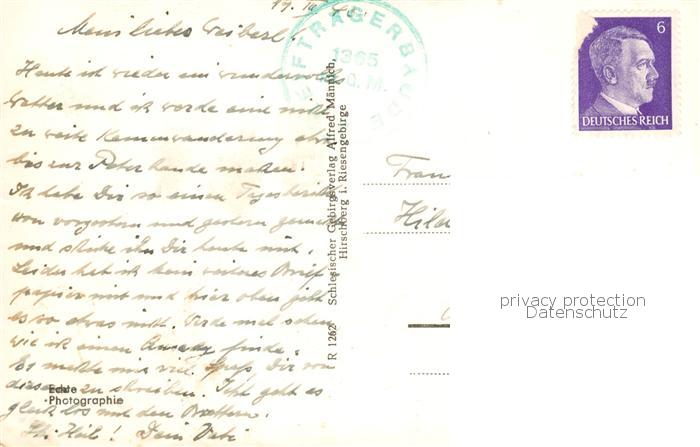 Mein liebes Weiberl!
Heute ist wieder ein wundervolles
Wetter und ich werde eine nicht
zu weite Kammwanderung etwa
bis zur Peterbaude machen.
Ich habe Dir so einen Tagesbericht
von vorgestern und gestern gemacht
und schicke ihn Dir heute mit.
Leider hat ich kein weiteres Brief-
papier mit und hier oben gibt
es so etwas nicht. Werde mal sehen
wie ich einen Ausweg finde.
Es macht mir viel Spaß, Dir von
diesem zu schreiben. Jetzt geht es
gleich los mit den Brettern.
Heil! Dein
Echte
Photographie
R 1262 Schlesischer Gebirgsverlag Alfred Männich,
Hirschberg i. Riesengebirge
1365
Frau
Hild
6
DEUTSCHES REICH
privacy protection
Datenschutz